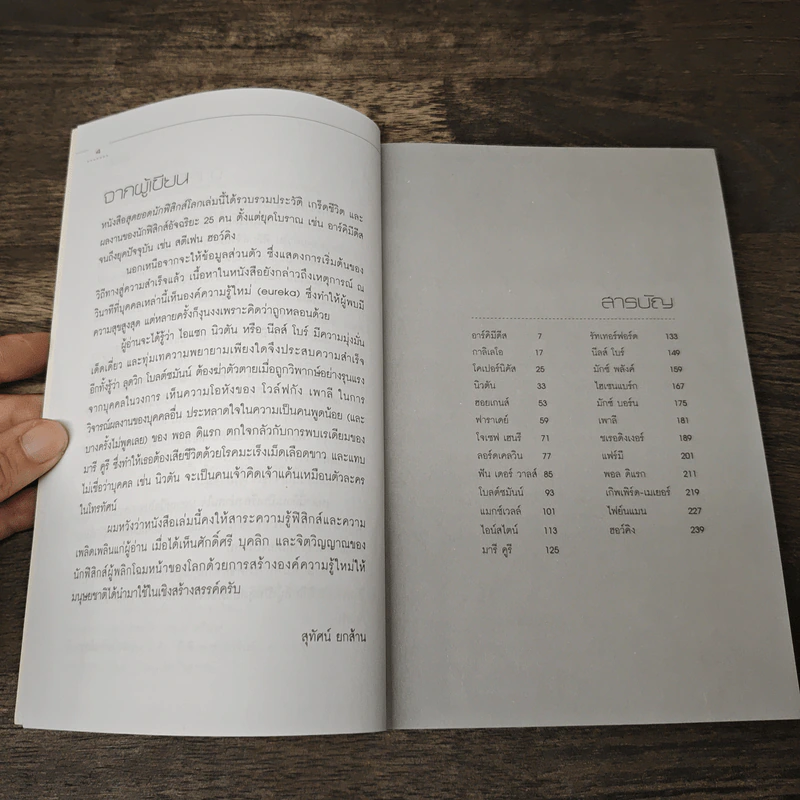 4
จากผู้เขียน
หนังสือสุดยอดนักฟิสิกส์โลกเล่มนี้ได้รวบรวมประวัติ เกร็ดชีวิต และ
ผลงานของนักฟิสิกส์อัจฉริยะ 25 คน ตั้งแต่ยุคโบราณ เช่น อาร์คิมีดีส
จนถึงยุคปัจจุบัน เช่น สตีเฟน ฮอว์คิง
นอกเหนือจากจะให้ข้อมูลส่วนตัว ซึ่งแสดงการเริ่มต้นของ
วิถีทางสู่ความสำเร็จแล้ว เนื้อหาในหนังสือยังกล่าวถึงเหตุการณ์ ณ
วินาทีที่บุคคลเหล่านี้เห็นองค์ความรู้ใหม่ (eureka) ซึ่งทำให้ผู้พบมี
ความสุขสูงสุด แต่หลายครั้งก็งุนงงเพราะคิดว่าถูกหลอนด้วย
ผู้อ่านจะได้รู้ว่า ไอแซก นิวตัน หรือ นีลส์ โบร์ มีความมุ่งมั่น
เด็ดเดี่ยว และทุ่มเทความพยายามเพียงใดจึงประสบความสำเร็จ
อีกทั้งรู้ว่า ลุดวิก โบลต์ซมันน์ ต้องฆ่าตัวตายเมื่อถูกวิพากษ์อย่างรุนแรง
จากบุคคลในวงการ เห็นความโอหังของ โวล์ฟกัง เพาลี ในการ
วิจารณ์ผลงานของบุคคลอื่น ประหลาดใจในความเป็นคนพูดน้อย (และ
บางครั้งไม่พูดเลย) ของ พอล ดิแรก ตกใจกลัวกับการพบเรเดียมของ
มารี คูรี ซึ่งทำให้เธอต้องเสียชีวิตด้วยโรคมะเร็งเม็ดเลือดขาว และแทบ
ไม่เชื่อว่าบุคคล เช่น นิวตัน จะเป็นคนเจ้าคิดเจ้าแค้นเหมือนตัวละคร
ในโทรทัศน์
ผมหวังว่าหนังสือเล่มนี้คงให้สาระความรู้ฟิสิกส์และความ
เพลิดเพลินแก่ผู้อ่าน เมื่อได้เห็นศักดิ์ศรี บุคลิก และจิตวิญญาณของ
นักฟิสิกส์ผู้พลิกโฉมหน้าของโลกด้วยการสร้างองค์ความรู้ใหม่ให้
มนุษยชาติได้นำมาใช้ในเชิงสร้างสรรค์ครับ
สุทัศน์ ยกส้าน
สารบัญ
อาร์คิมีดีส 7
กาลิเลโอ 17
โคเปอร์นิคัส 25
นิวตัน 33
ฮอยเกนส์ 53
ฟาราเดย์ 59
โจเซฟ เฮนรี 71
ลอร์ดเคลวิน 77
ฟัน เดอร์ วาลส์ 85
โบลต์ซมันน์ 93
แมกซ์เวลล์ 101
ไอน์สไตน์ 113
มารี คูรี 125
รัทเทอร์ฟอร์ด 133
นีลส์ โบร์ 149
มักซ์ พลังค์ 159
ไฮเซนแบร์ก 167
มักซ์ บอร์น 175
เพาลี 181
ชเรอดิงเงอร์ 189
แฟร์มี 201
พอล ดิแรก 211
เกิพเพิร์ต-เมเยอร์ 219
ไฟย์นแมน 227
ฮอว์คิง 239